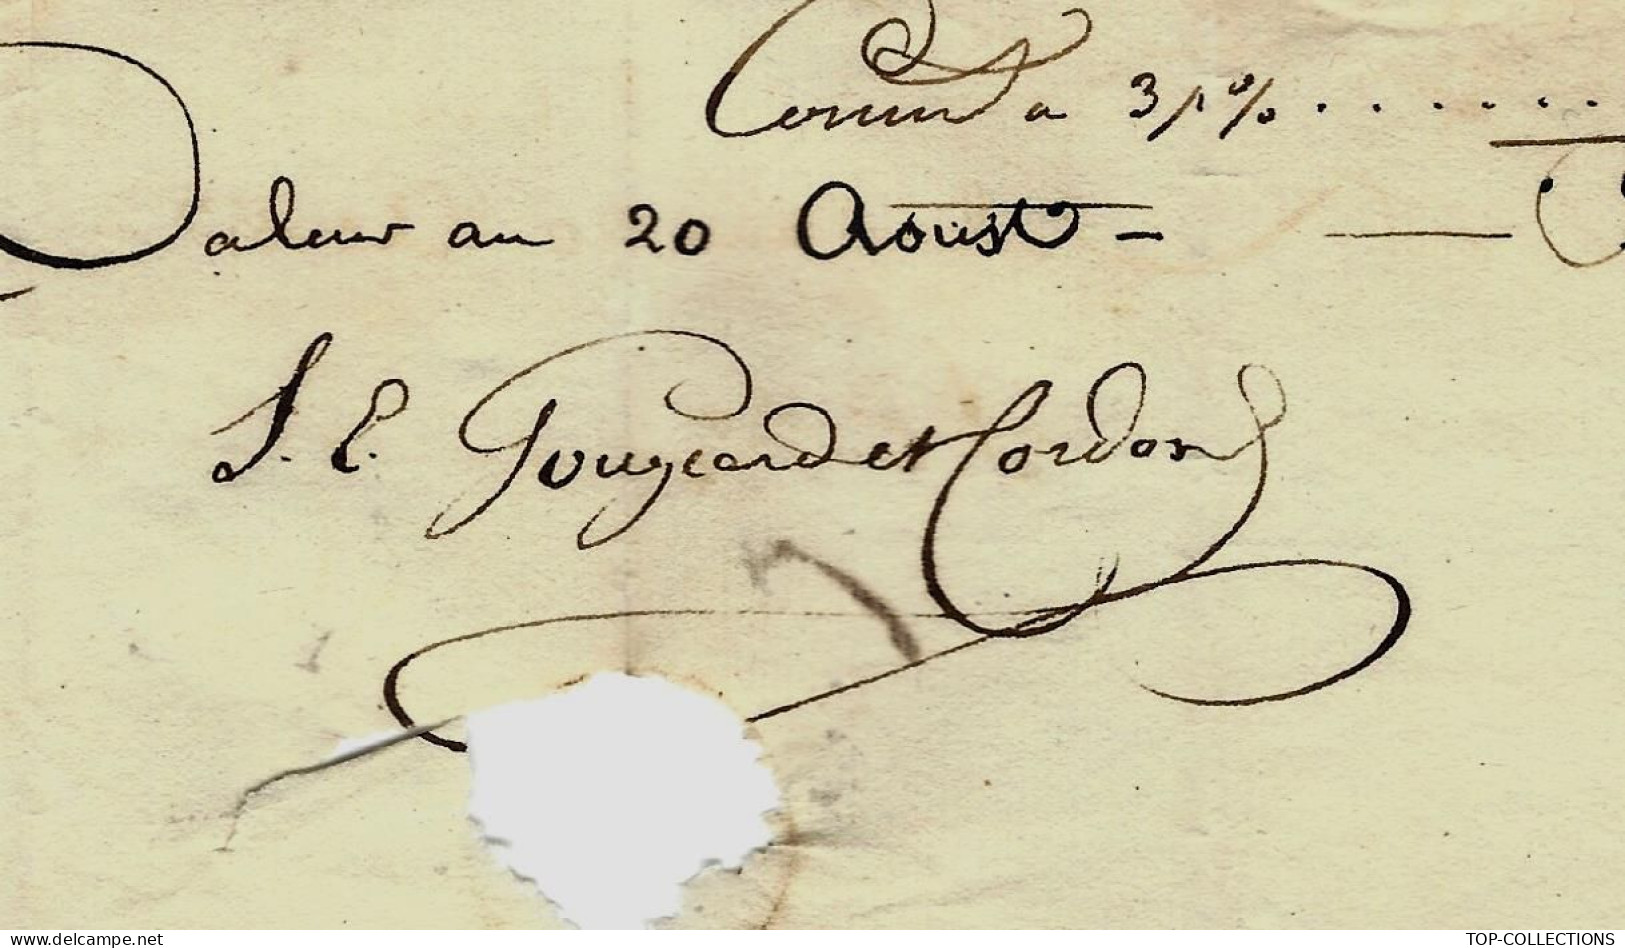 Comm à 3 p%.......
Valeur au 20 Aoust -
J. E. Gougeard et Cordon
www.delcampe.net
TOP-COLLECTIONS